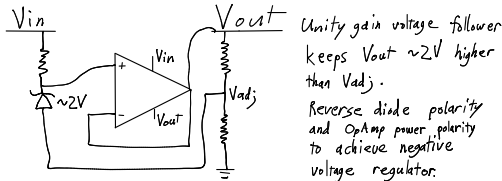 Vin
Vout
Vin
+
~2V
Vadj
-
Vout
Unity gain voltage follower
keeps Vout ~2V higher
than Vadj.
Reverse diode polarity
and OpAmp power polarity
to achieve negative
voltage regulator.